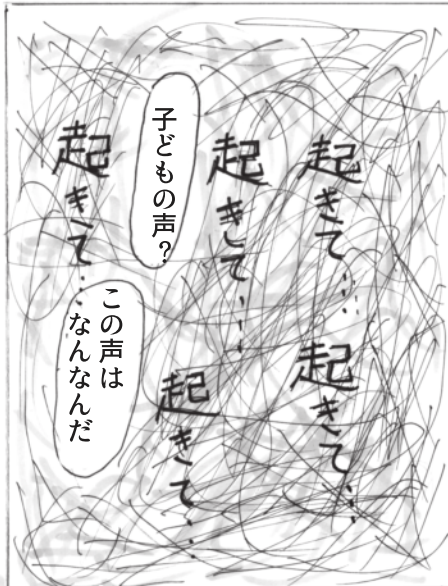 起きて…
起きて…
起きて…
起きて…
子どもの声？
起きて…
この声は
なんなんだ